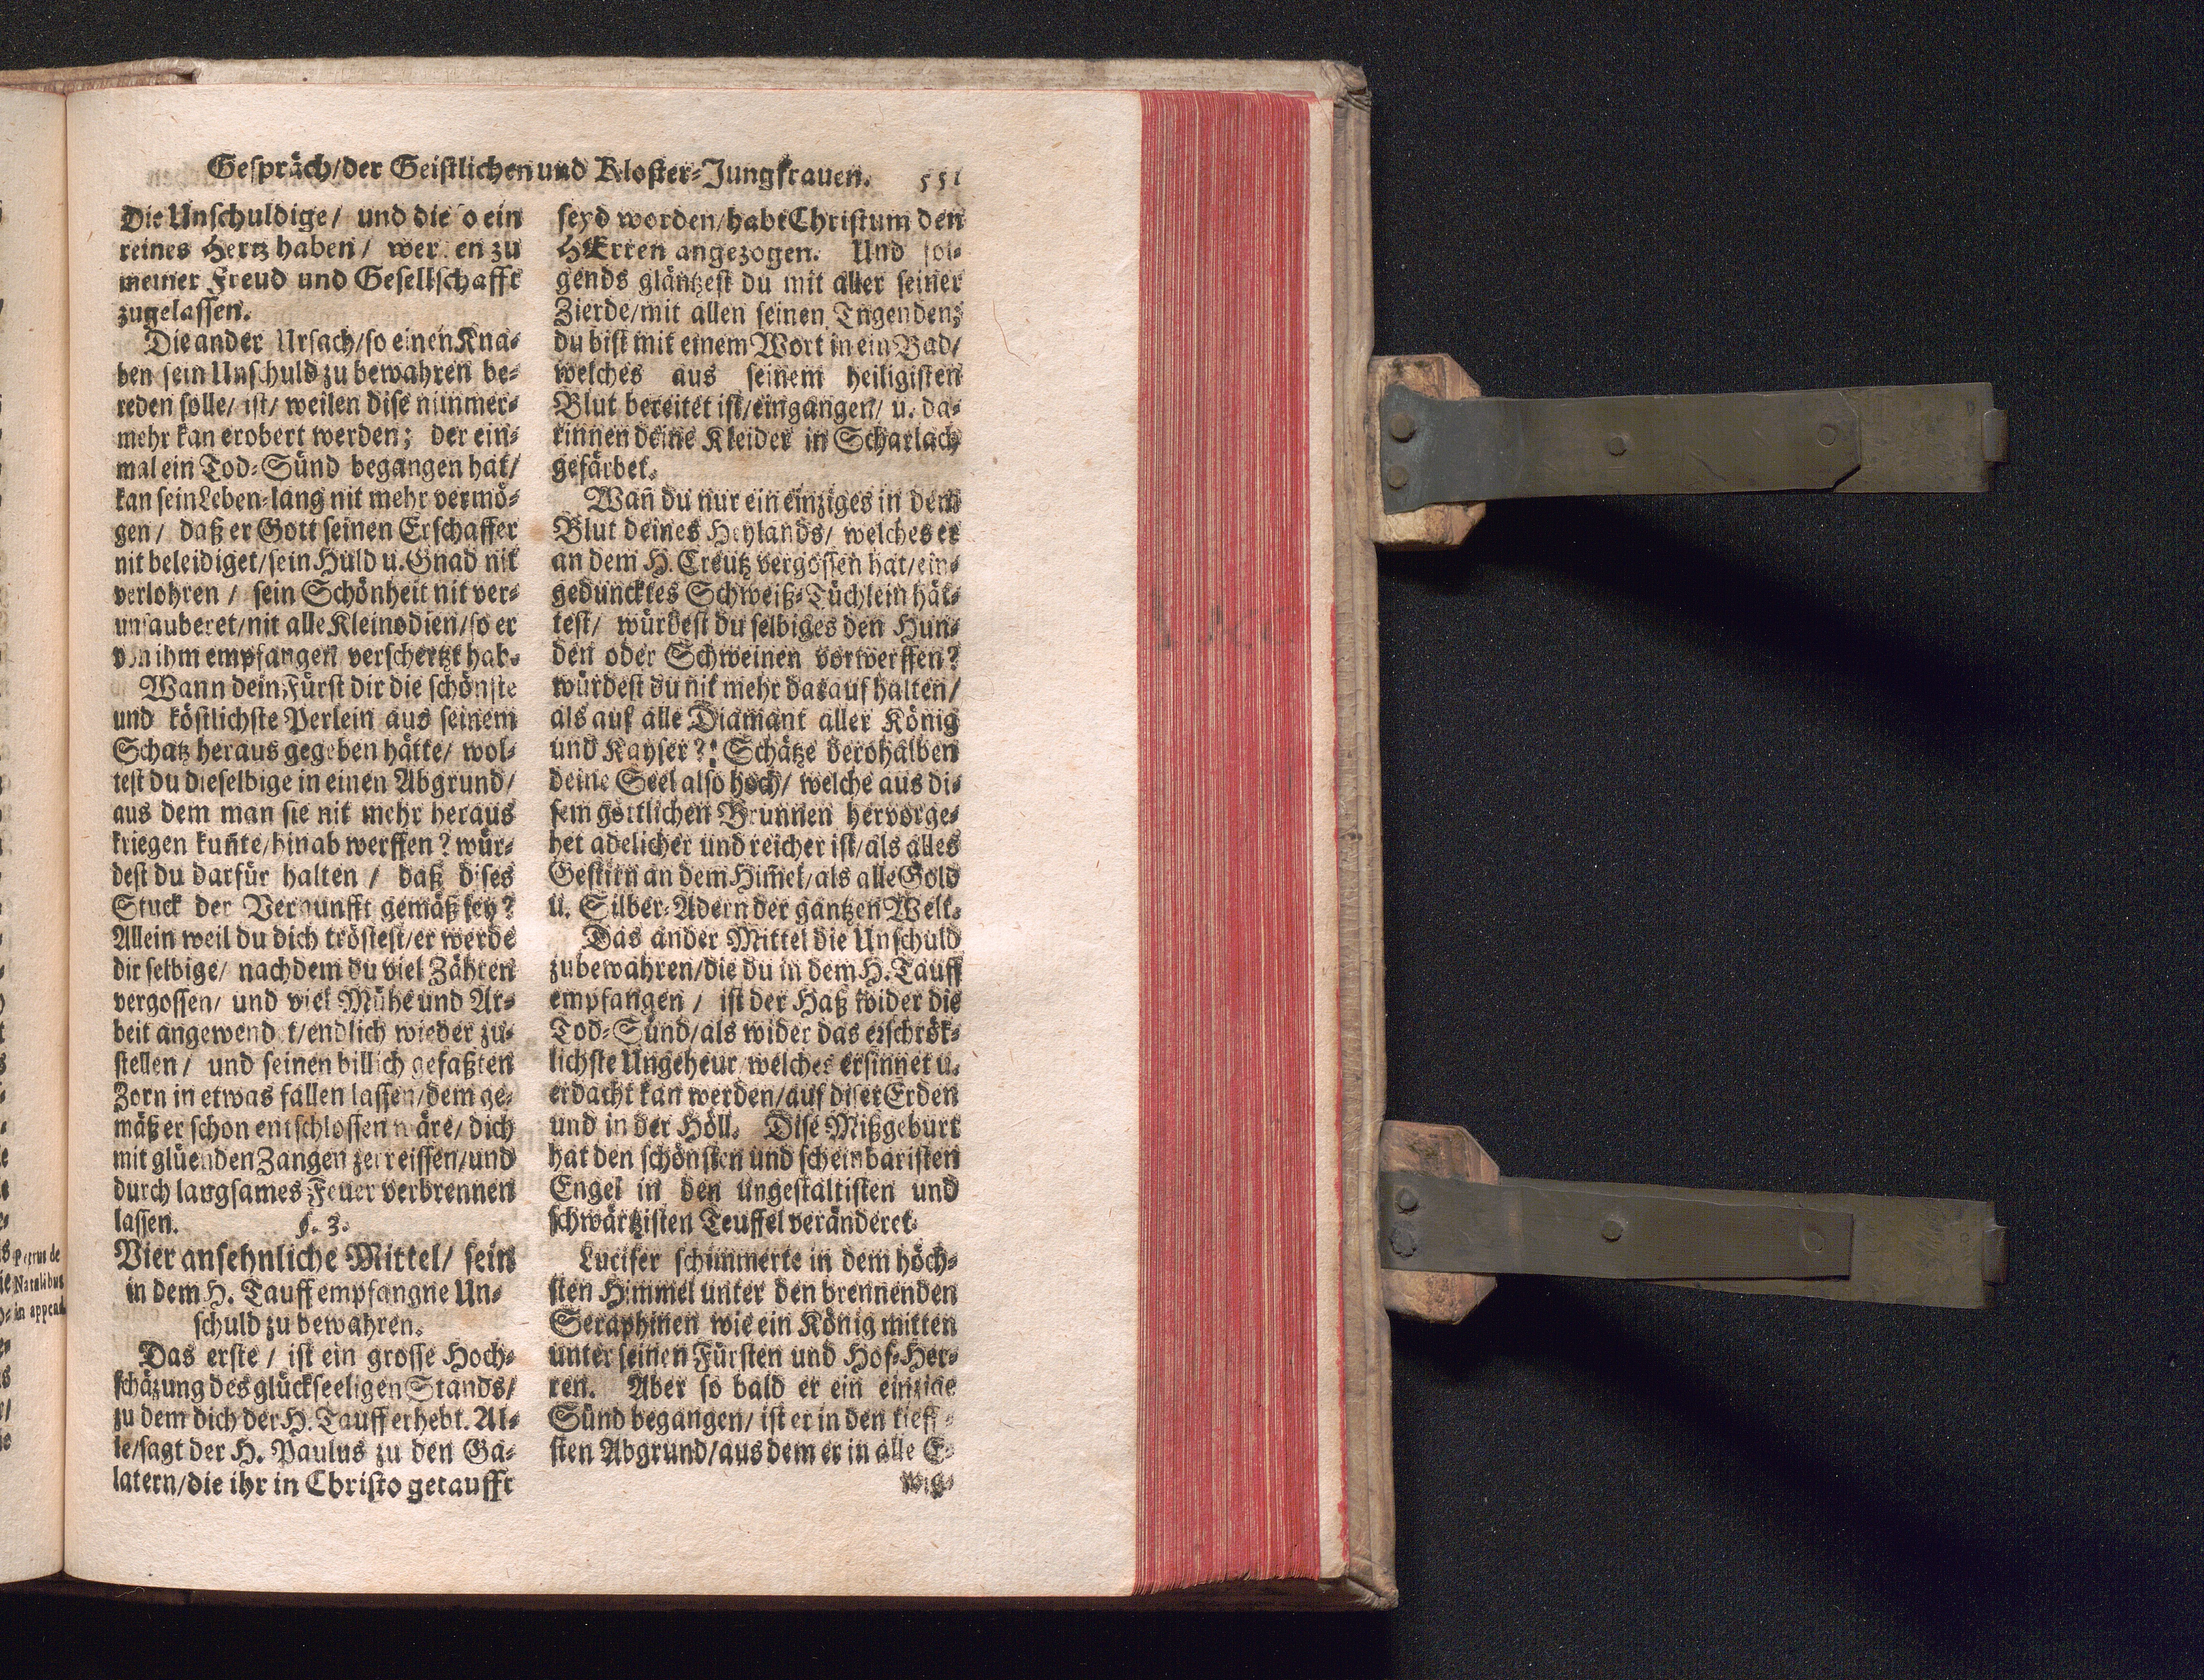 Gespräch/der Geistlichen und Kloster-Jungfrauen. 551
Die Unschuldige/ und die so ein
reines Hertz haben/ werden zu
meiner Freud und Gesellschafft
zugelassen.
Die ander Ursach/so einen Kna-
ben sein Unschuld zu bewahren be-
reden solle/ ist/ weilen dise nimmer-
mehr kan erobert werden; der ein-
mal ein Tod-Sünd begangen hat/
kan sein Leben-lang nit mehr vermö-
gen/ daß er Gott seinen Erschaffer
nit beleidiget/sein Huld u. Gnad nit
verlohren / sein Schönheit nit ver-
unsauberet/nit alle Kleinodien/so er
von ihm empfangen verschertzt hab.
Wann dein Fürst dir die schönste
und köstlichste Perlein aus seinem
Schatz heraus gegeben hätte/ wol-
test du dieselbige in einen Abgrund/
aus dem man sie nit mehr heraus
kriegen kuñte/hinab werffen? wür-
dest du darfür halten / daß dises
Stuck der Vernunfft gemäß sey?
Allein weil du dich tröstest/er werde
dir selbige/ nachdem du viel Zähren
vergossen/ und viel Mühe und Ar-
beit angewendet/endlich wieder zu-
stellen/ und seinen billich gefaßten
Zorn in etwas fallen lassen/dem ge-
mäß er schon entschlossen wäre/ dich
mit glüenden Zangen zerreissen/und
durch langsames Feuer verbrennen
lassen. §. 3.
Vier ansehnliche Mittel/ sein
in dem H. Tauff empfangne Un-
schuld zu bewahren.
Das erste / ist ein grosse Hoch-
schäzung des glückseeligen Stands/
zu dem dich der H. Tauff erhebt. Al-
le/sagt der H. Paulus zu den Ga-
latern/die ihr in Christo getaufft
seyd worden/habt Christum den
HErren angezogen. Und fol-
gends gläntzest du mit aller seiner
Zierde/mit allen seinen Tngenden;
du bist mit einem Wort in ein Bad/
welches aus seinem heiligisten
Blut bereitet ist/eingangen/ u. da-
rinnen deine Kleider in Scharlach
gefärbet.
Wañ du nur ein einziges in dem
Blut deines Heylands/ welches er
an dem H. Creutz vergossen hat/ein-
geduncktes Schweiß-Tüchlein hät-
test/ würdest du selbiges den Hun-
den oder Schweinen vorwerffen?
würdest du nit mehr darauf halten/
als auf alle Diamant aller König
und Kayser?! Schätze derohalben
deine Seel also hoch/ welche aus di-
sem göttlichen Brunnen hervorge-
het adelicher und reicher ist/als alles
Gestirn an dem Him̃el/als alle Gold
u. Silber-Adern der gantzen Welt.
Das ander Mittel die Unschuld
zu bewahren/die du in dem H. Tauff
empfangen / ist der Haß wider die
Tod-Sünd/als wider das erschrök-
lichste Ungeheur/welches ersinnet u.
erdacht kan werden/auf diser Erden
und in der Höll. Dise Mißgeburt
hat den schönsten und scheinbaristen
Engel in den ungestaltisten und
schwärtzisten Teuffel veränderet.
Lucifer schimmerte in dem höch-
sten Himmel unter den brennenden
Seraphinen wie ein König mitten
unter seinen Fürsten und Hof-Her-
ren. Aber so bald er ein einzige
Sünd begangen/ ist er in den tieff-
sten Abgrund/aus dem er in alle E-
wig-
Petrus de
Natalibus
in append.